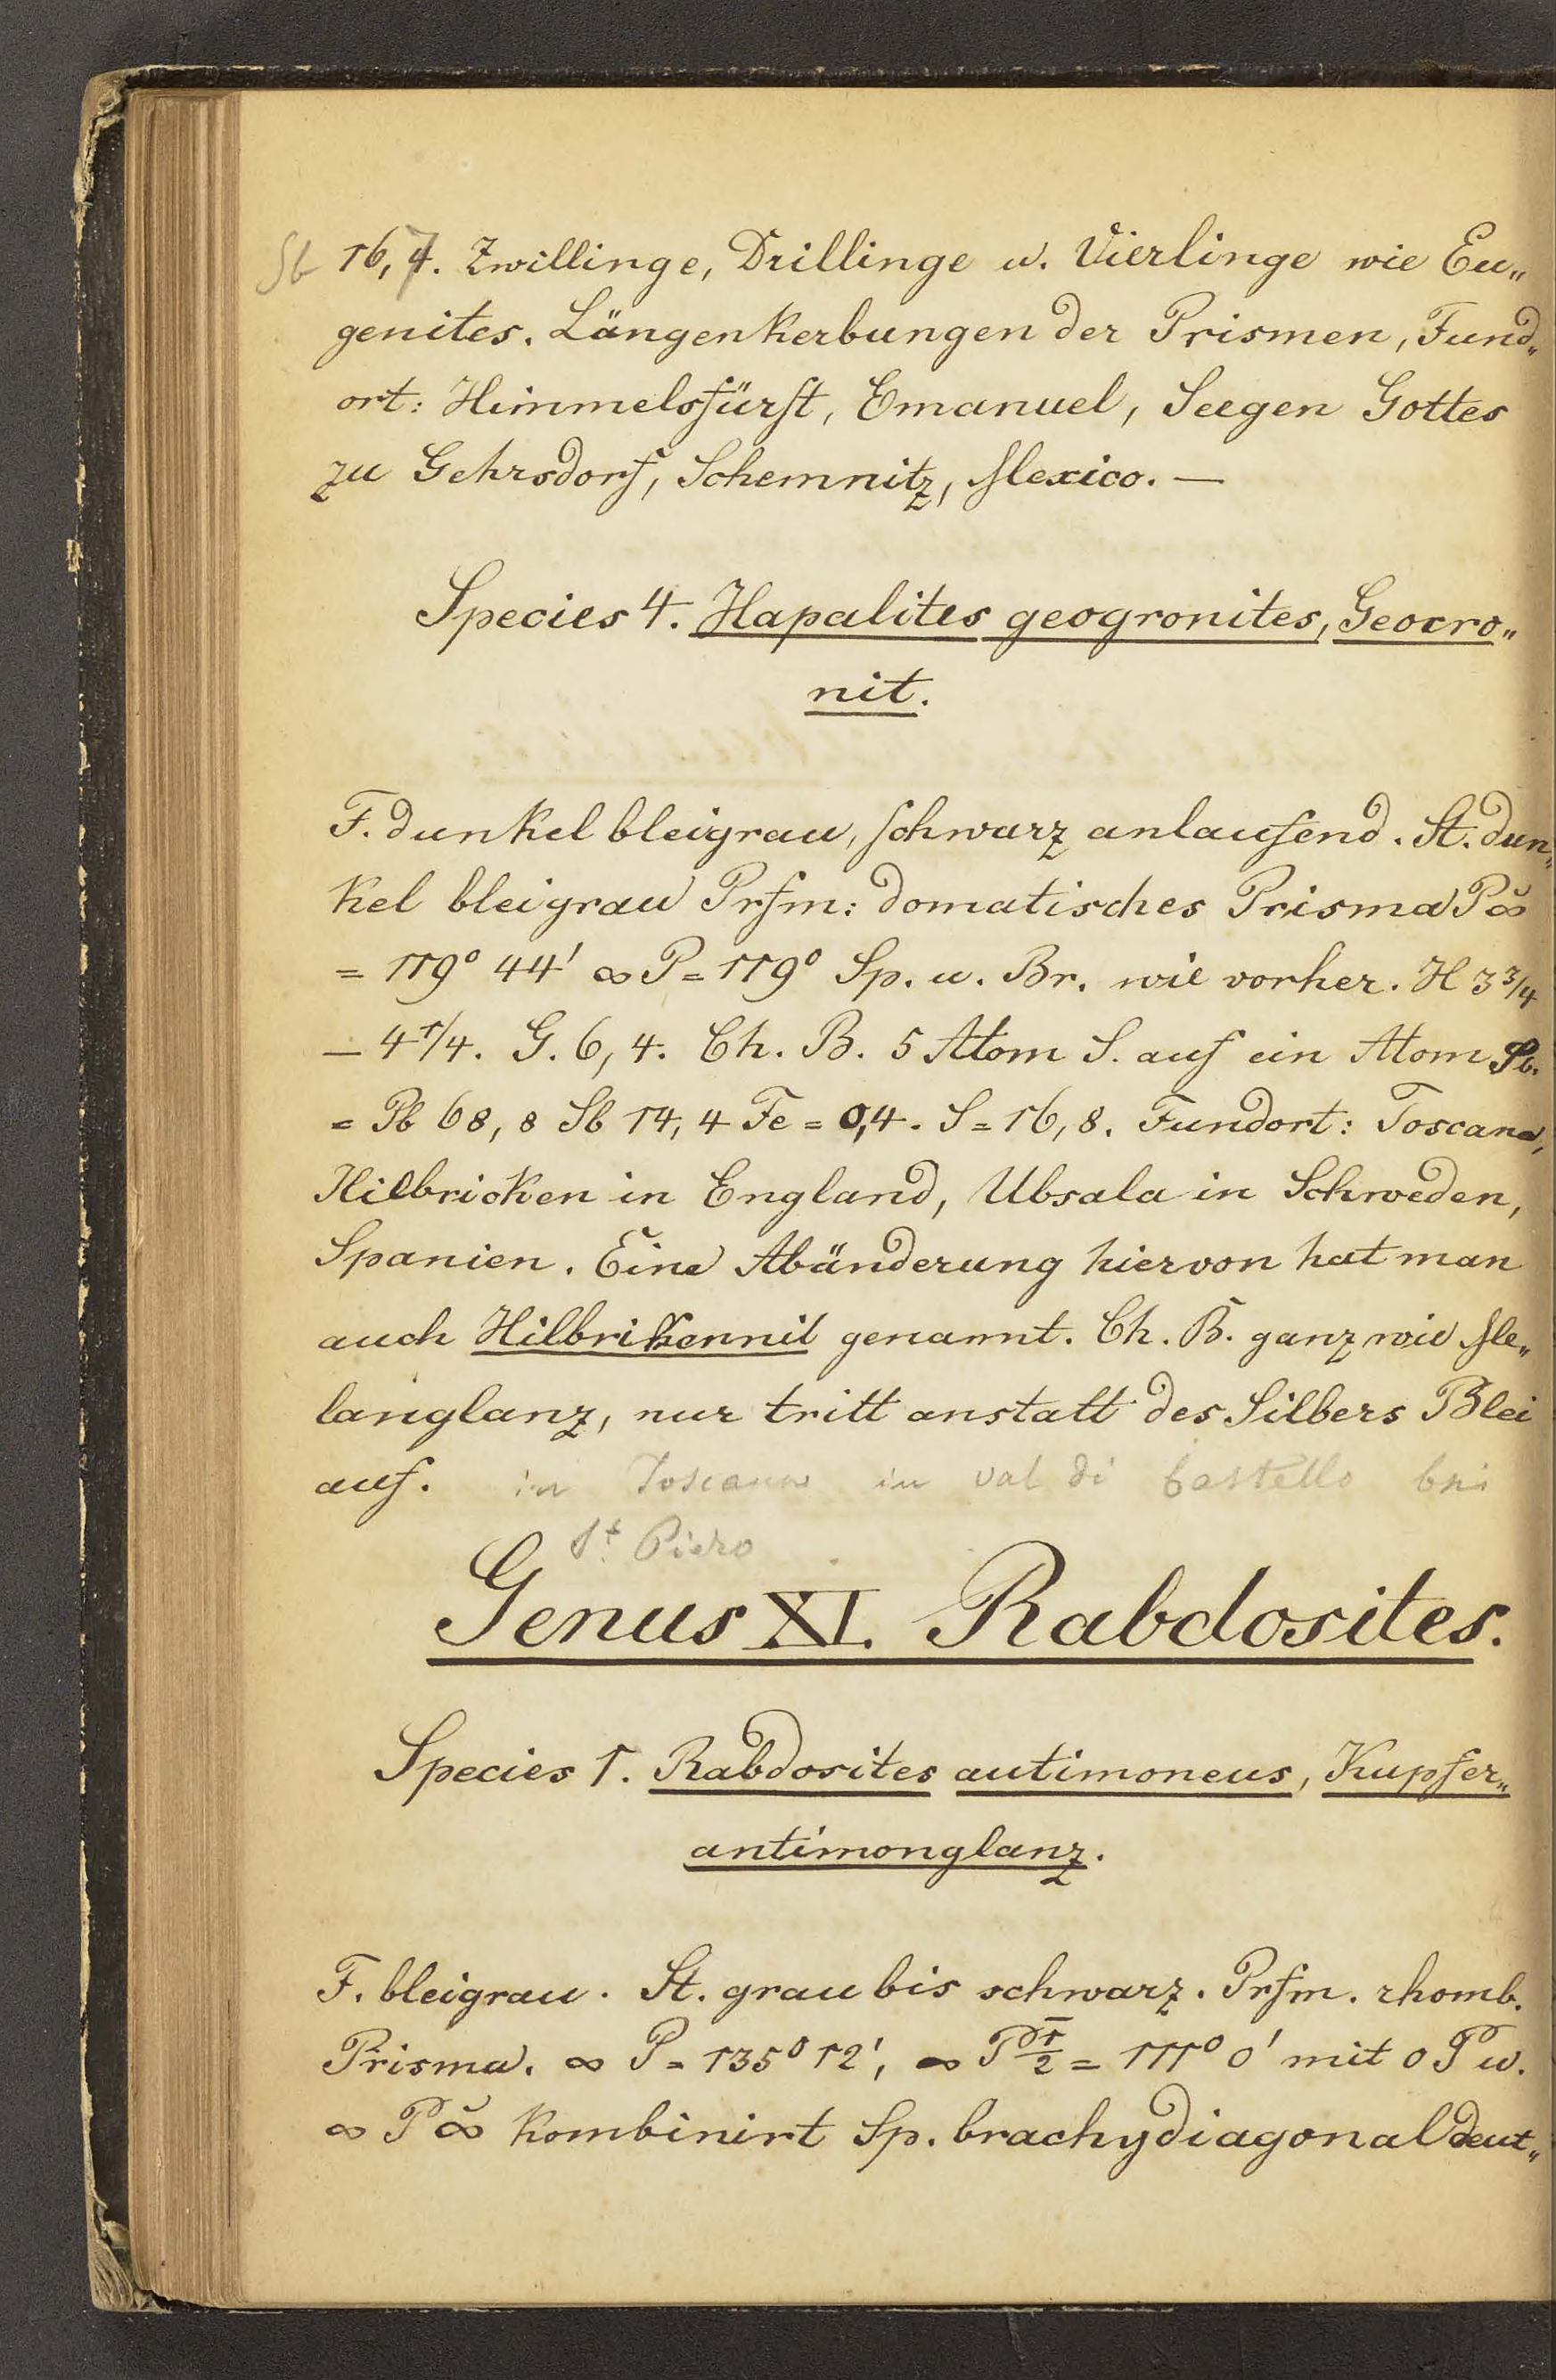 Sb 16,7. Zwillinge, Drillinge u. Vierlinge wie Eu„
genites. Längenkerbungen der Prismen, Fund„
ort: Himmelsfürst, Emanuel, Seegen Gottes
zu Gehrsdorf, Schemnitz, Mexico. —
Species 4. Hapalites geogronites, Geocro„
nit.
F. dunkel bleigrau, schwarz anlaufend. St. dun„
kel bleigrau Prfm: domatisches Prisma P∞̆
= 119° 44' ∞ P = 119° Sp. u. Br. wie vorher. H 3 3/4
— 4 1/4. G. 6,4. Ch. B. 5 Atom S. auf ein Atom Sb.
= Pb 68,8 Sb 14,4 Fe = 0,4. S = 16,8. Fundort: Toscana,
Hilbricken in England, Ubsala in Schweden,
Spanien. Eine Abänderung hiervon hat man
auch Hilbrikennit genannt. Ch. B. ganz wie Me„
langlanz, nur tritt anstatt des Silbers Blei
auf. in Toscana in val di Castello bei
St. Piero
Genus XI. Rabdosites.
Species 1. Rabdosites autimoneus, Kupfer„
antimonglanz.
F. bleigrau. St. grau bis schwarz. Prfm. rhomb.
Prisma. ∞ P = 135° 12', ∞ P̄ 1/2 = 111° 0' mit 0 P u.
∞ P ∞̆ kombinirt Sp. brachydiagonal deut„